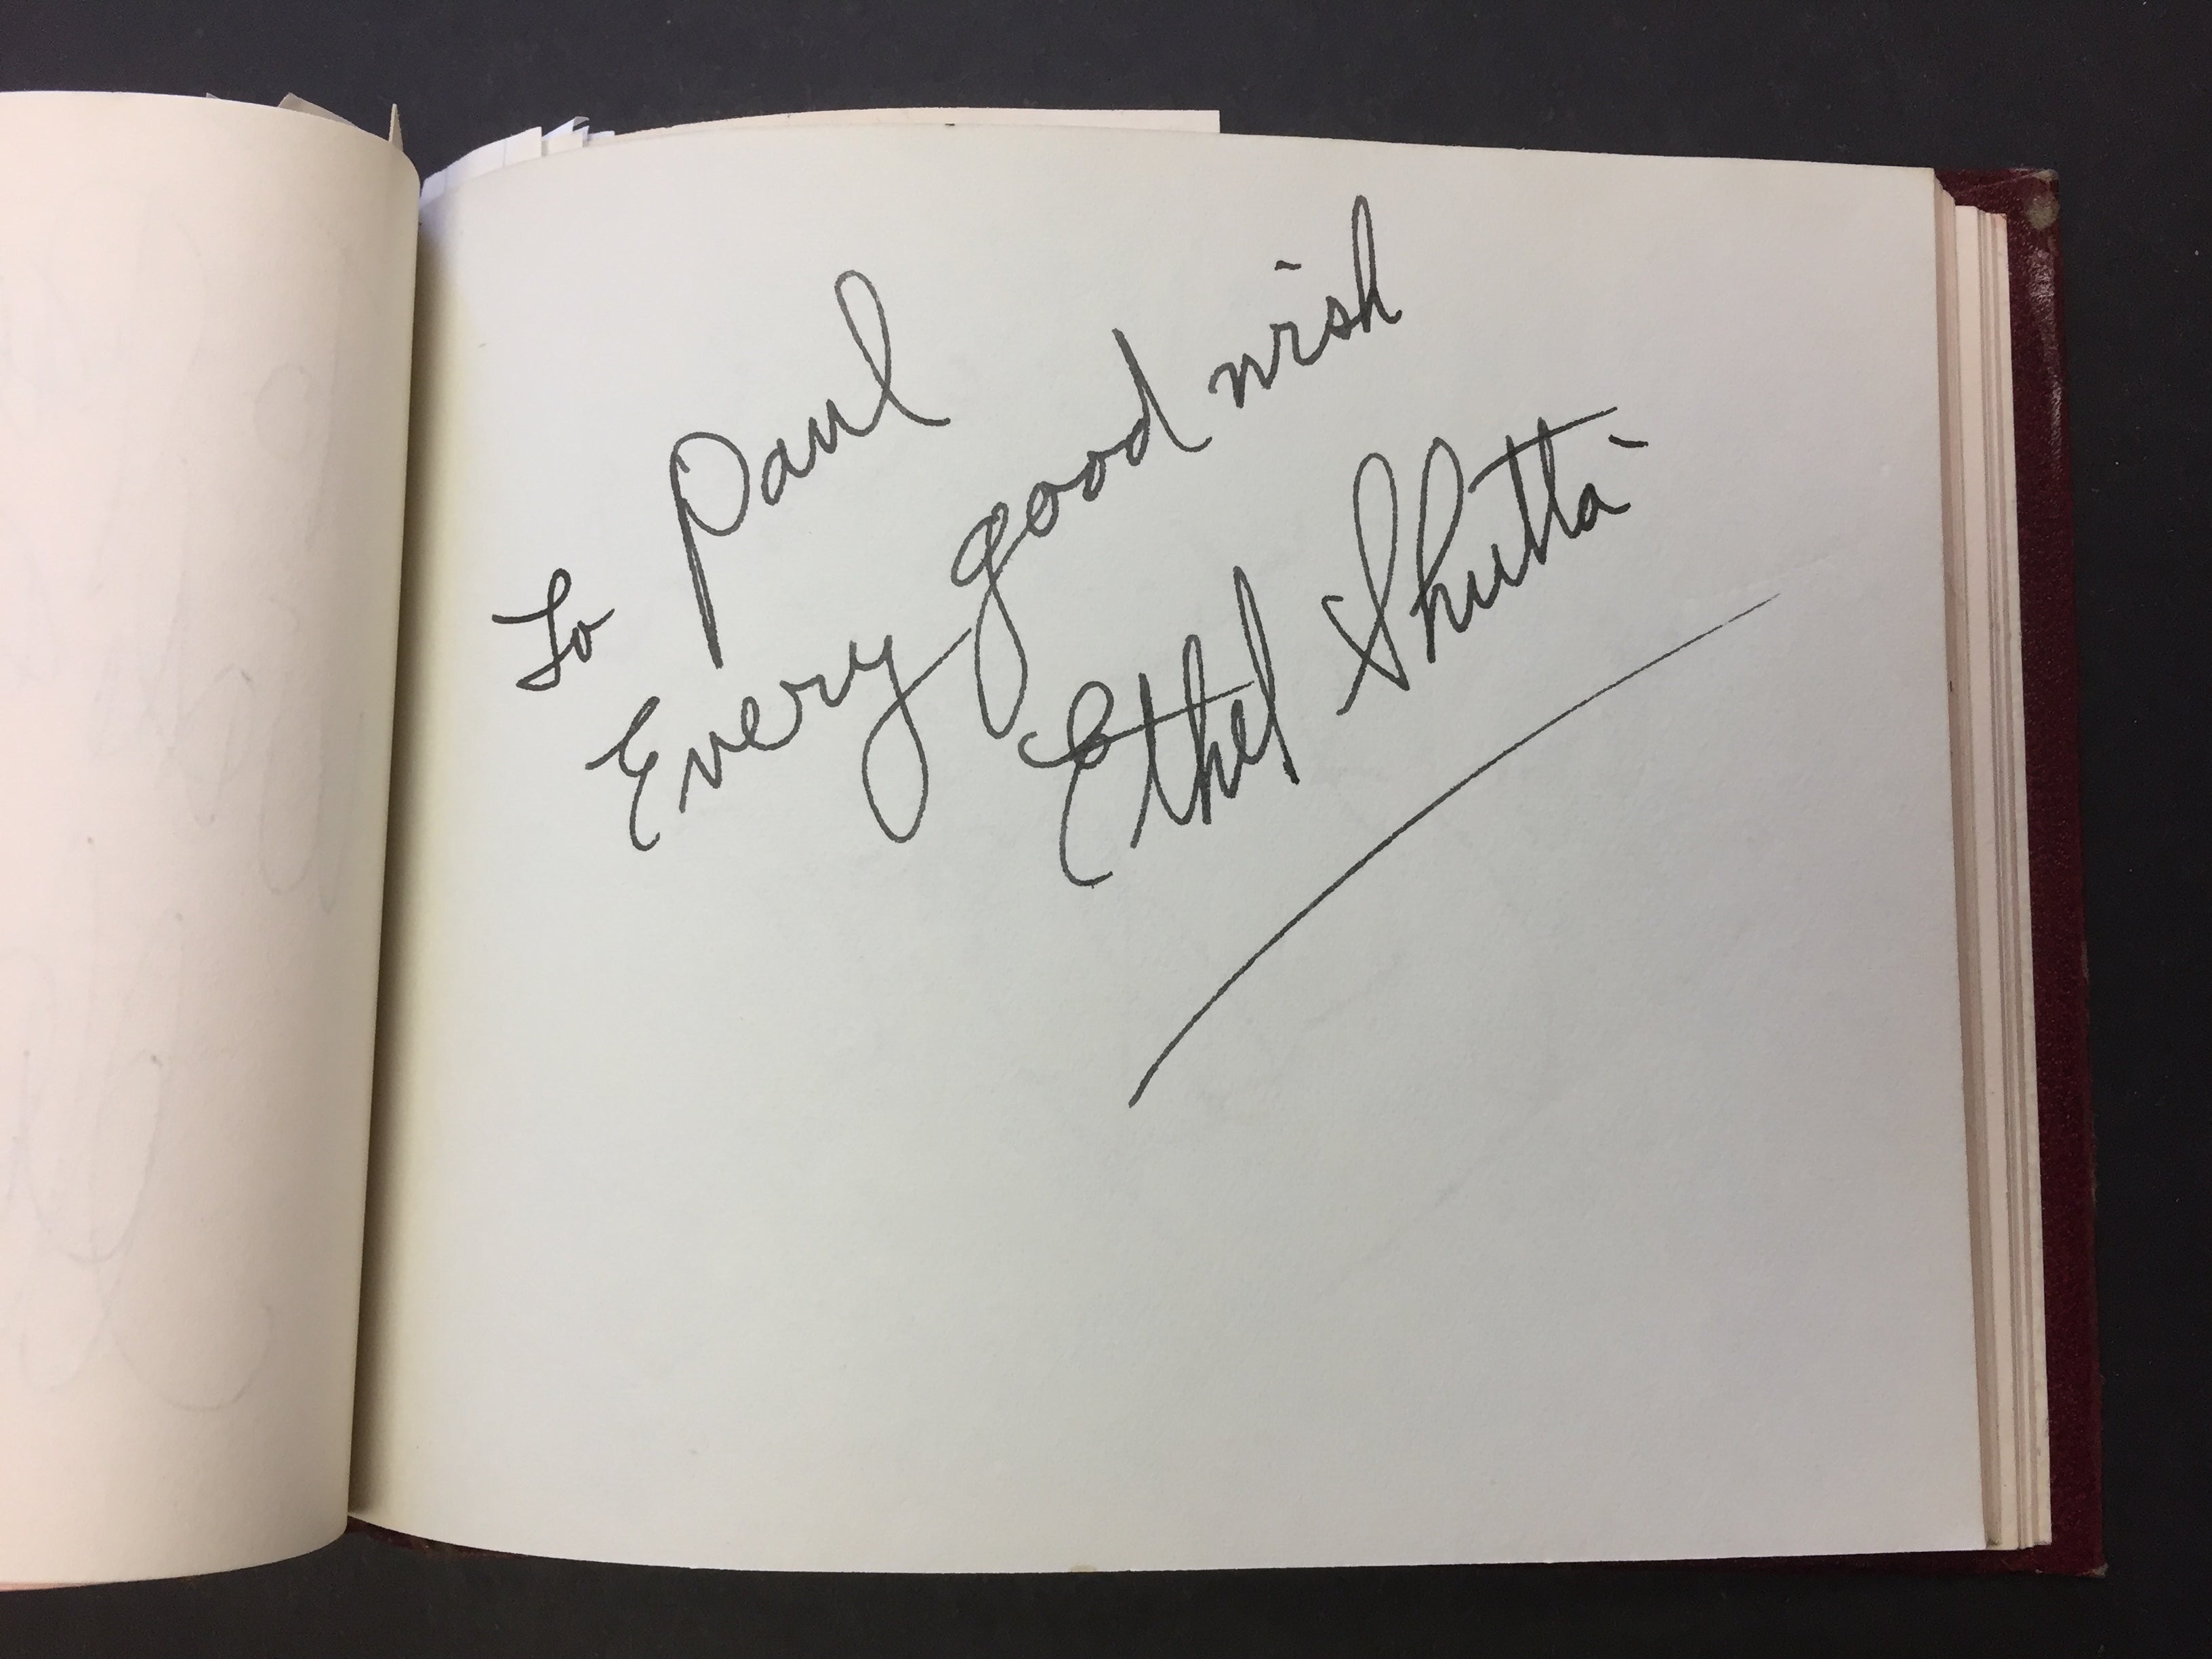 To Paul
Every good wish
Ethel Shutta